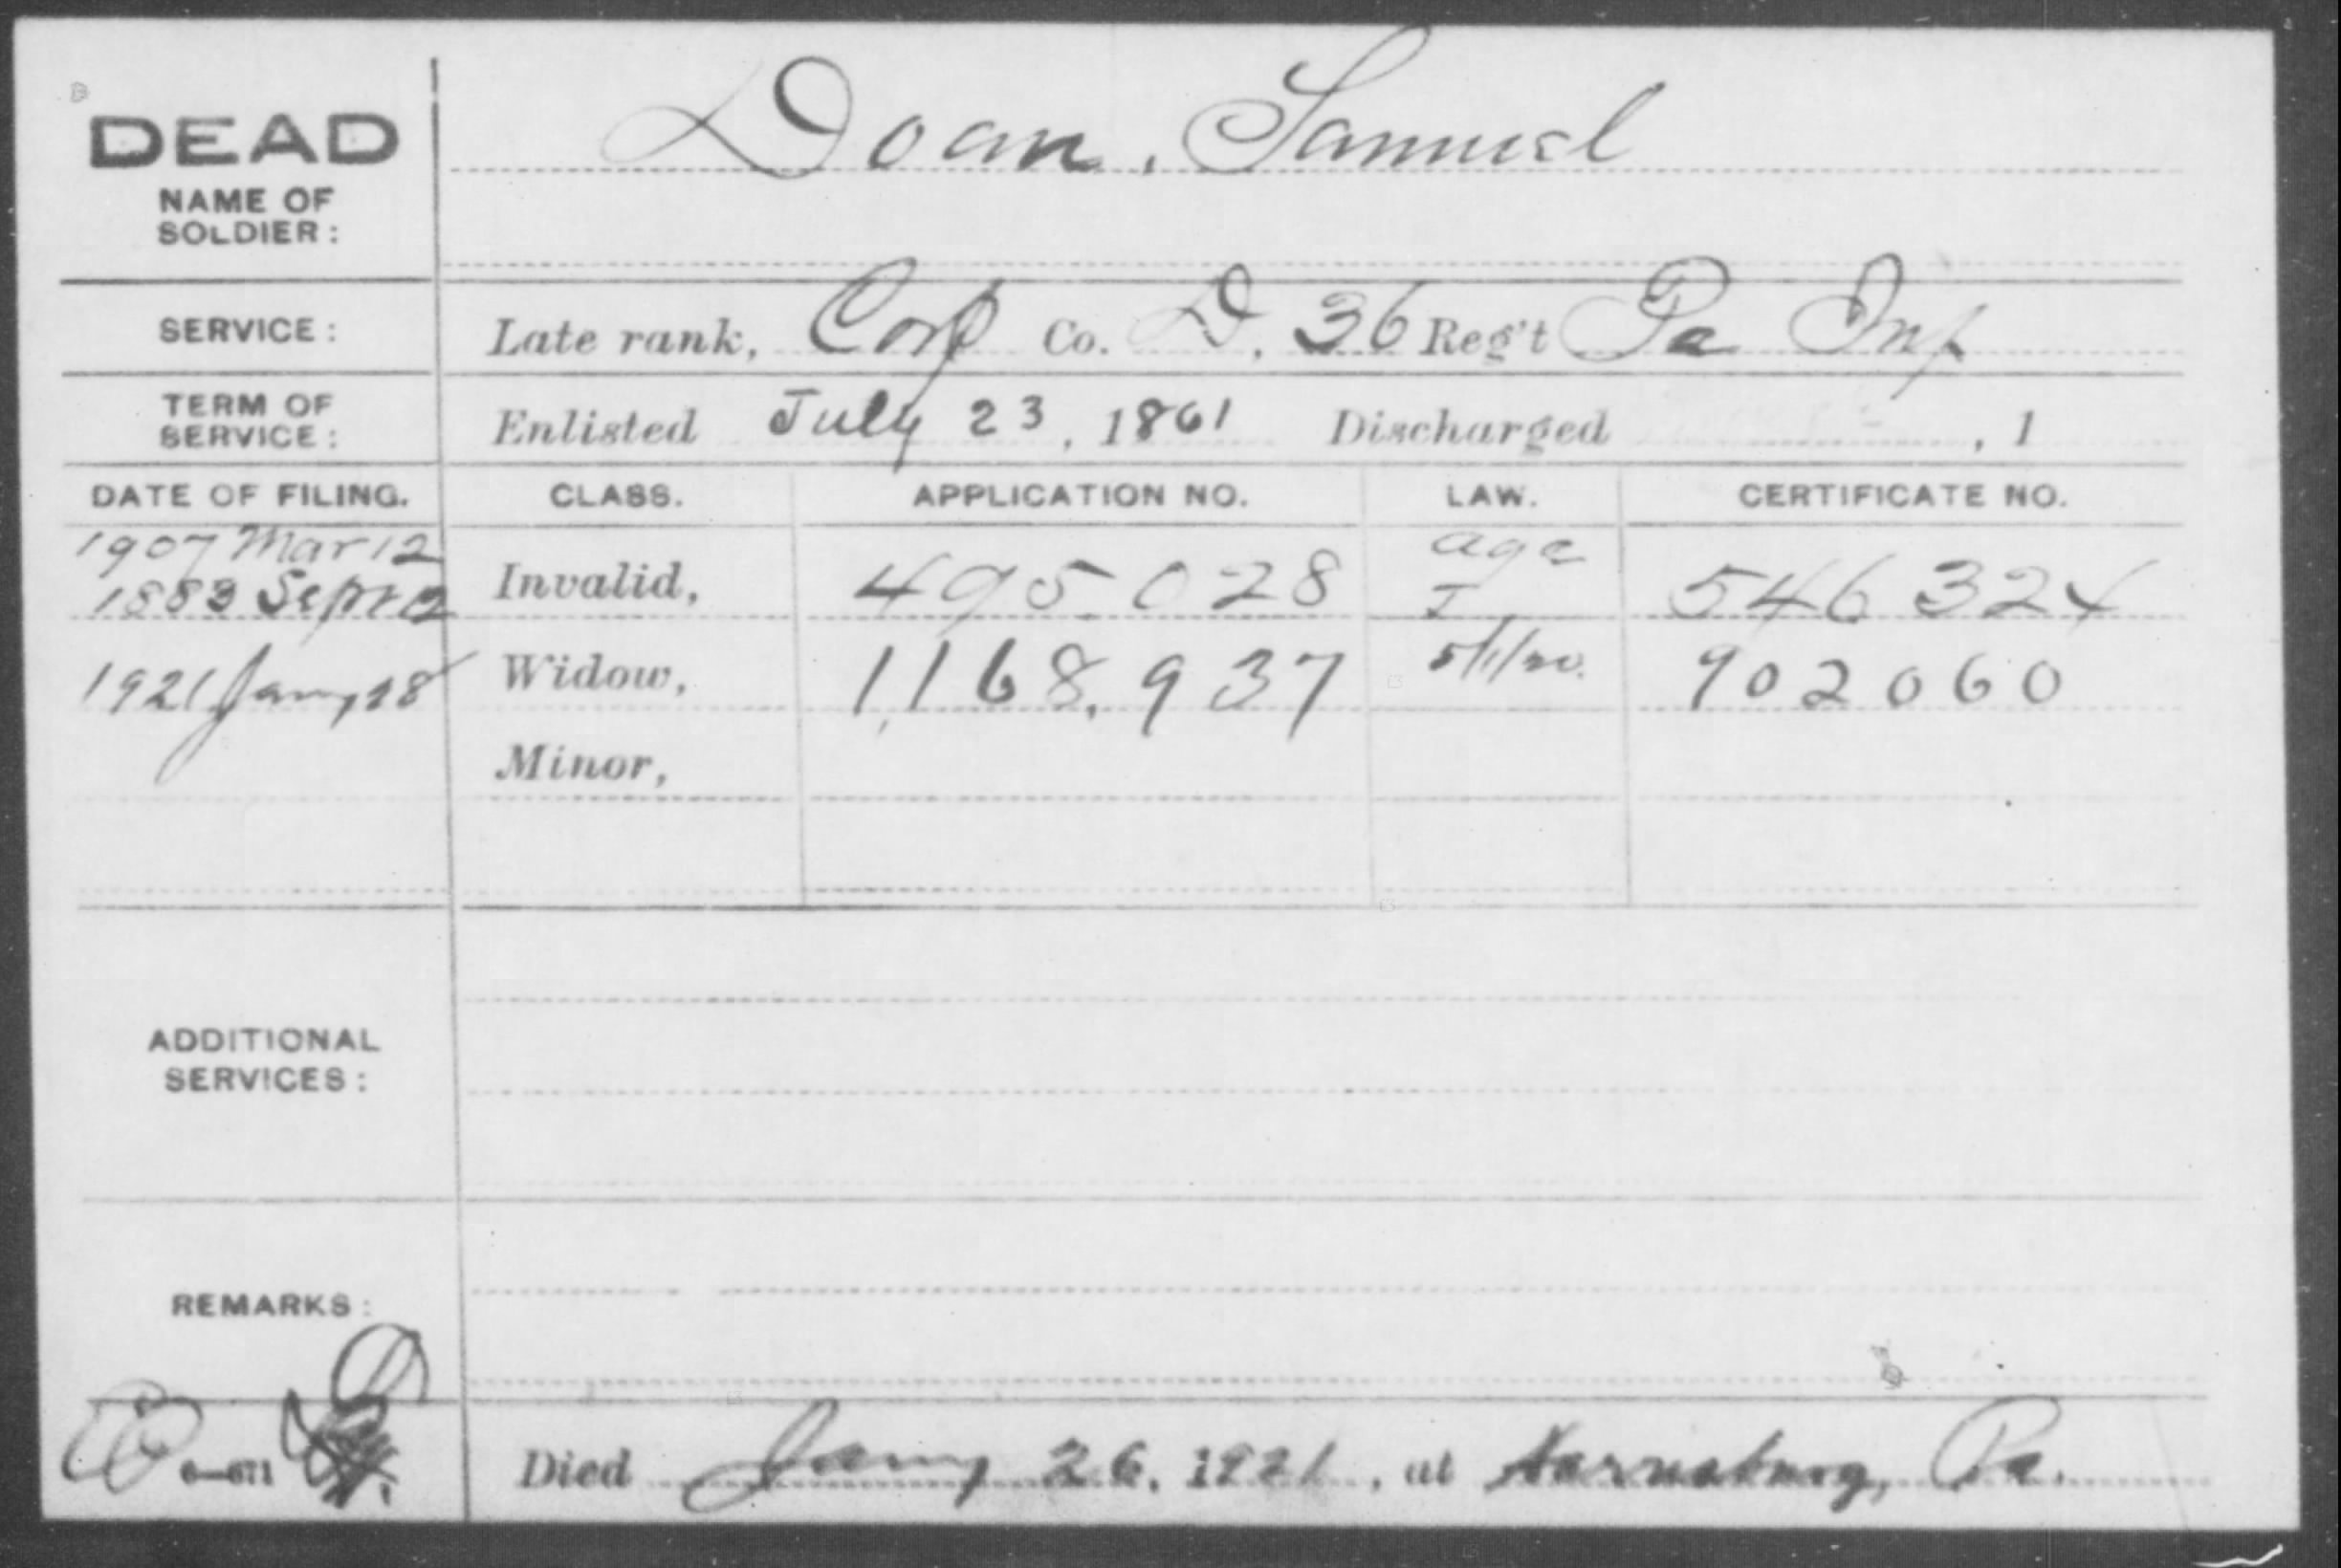 DEAD
Doan, Samuel
NAME OF
SOLDIER:
SERVICE: Late rank, Corp Co. D, 36 Reg't Pa Inf
TERM OF
SERVICE: Enlisted July 23, 1861 Discharged , 1
DATE OF FILING. CLASS. APPLICATION NO. LAW. CERTIFICATE NO.
1907 Mar 12 age
1883 Sept 12 Invalid, 495.028 I 546324
1921 Jany 28 Widow, 1,168,937 5/1/20. 902060
Minor,
ADDITIONAL
SERVICES:
REMARKS:
6-671 Died Jany 26, 1921, at Harrisburg, Pa.